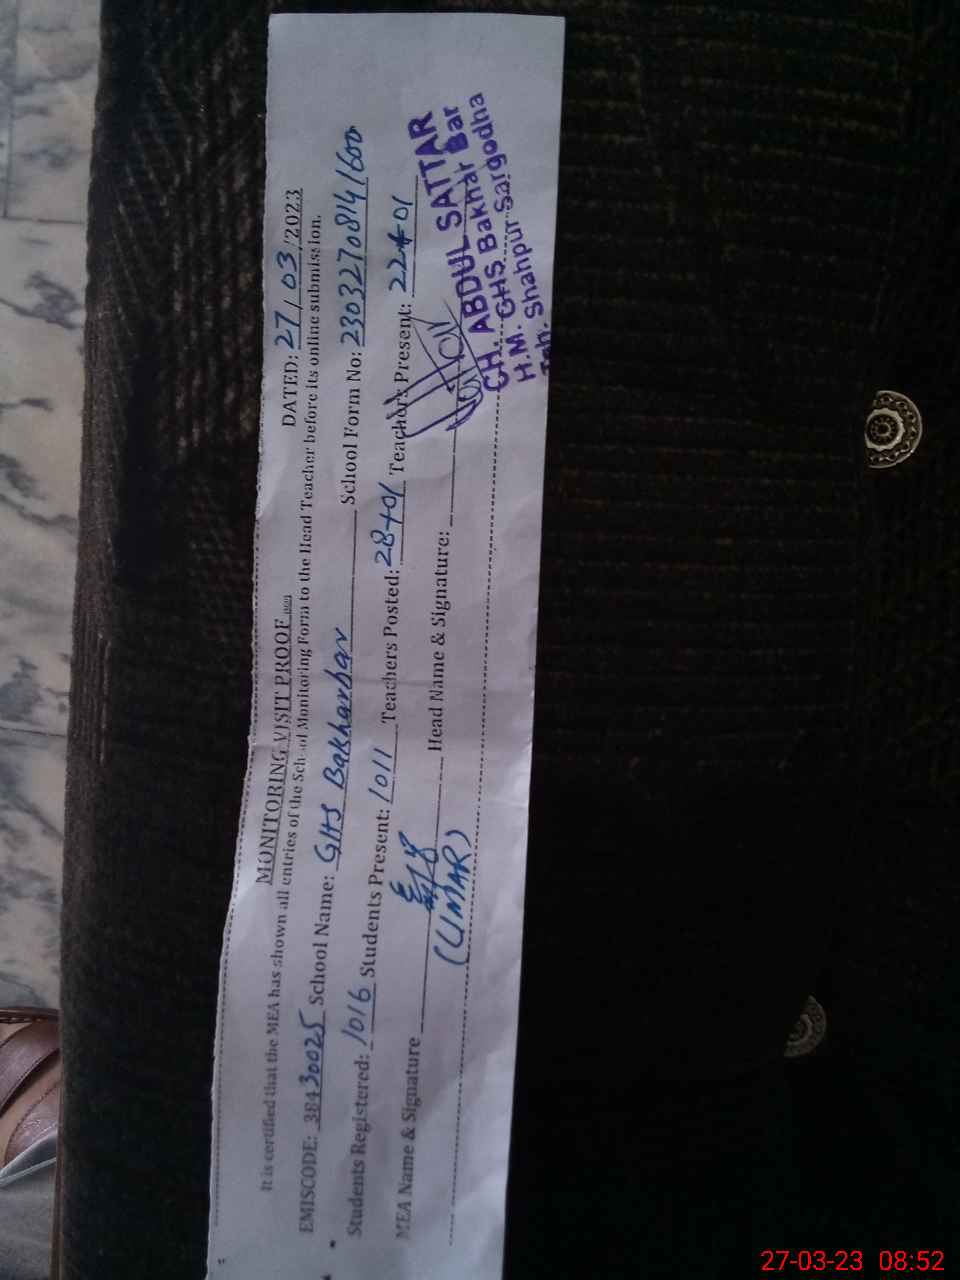 MONITORING VISIT PROOF
DATED: 27/03/2023
It is certified that the MEA has shown all entries of the School Monitoring Form to the Head Teacher before its online submission.
EMISCODE: 38430025 School Name: GHS Bakharbar School Form No: 23032708141600
Students Registered: 1016 Students Present: 1011 Teachers Posted: 28+01 Teachers Present: 22+01
MEA Name & Signature Head Name & Signature:
(UMAR)
CH. ABDUL SATTAR
H.M. GHS Bakhar Bar
Teh. Shahpur Sargodha
27-03-23 08:52